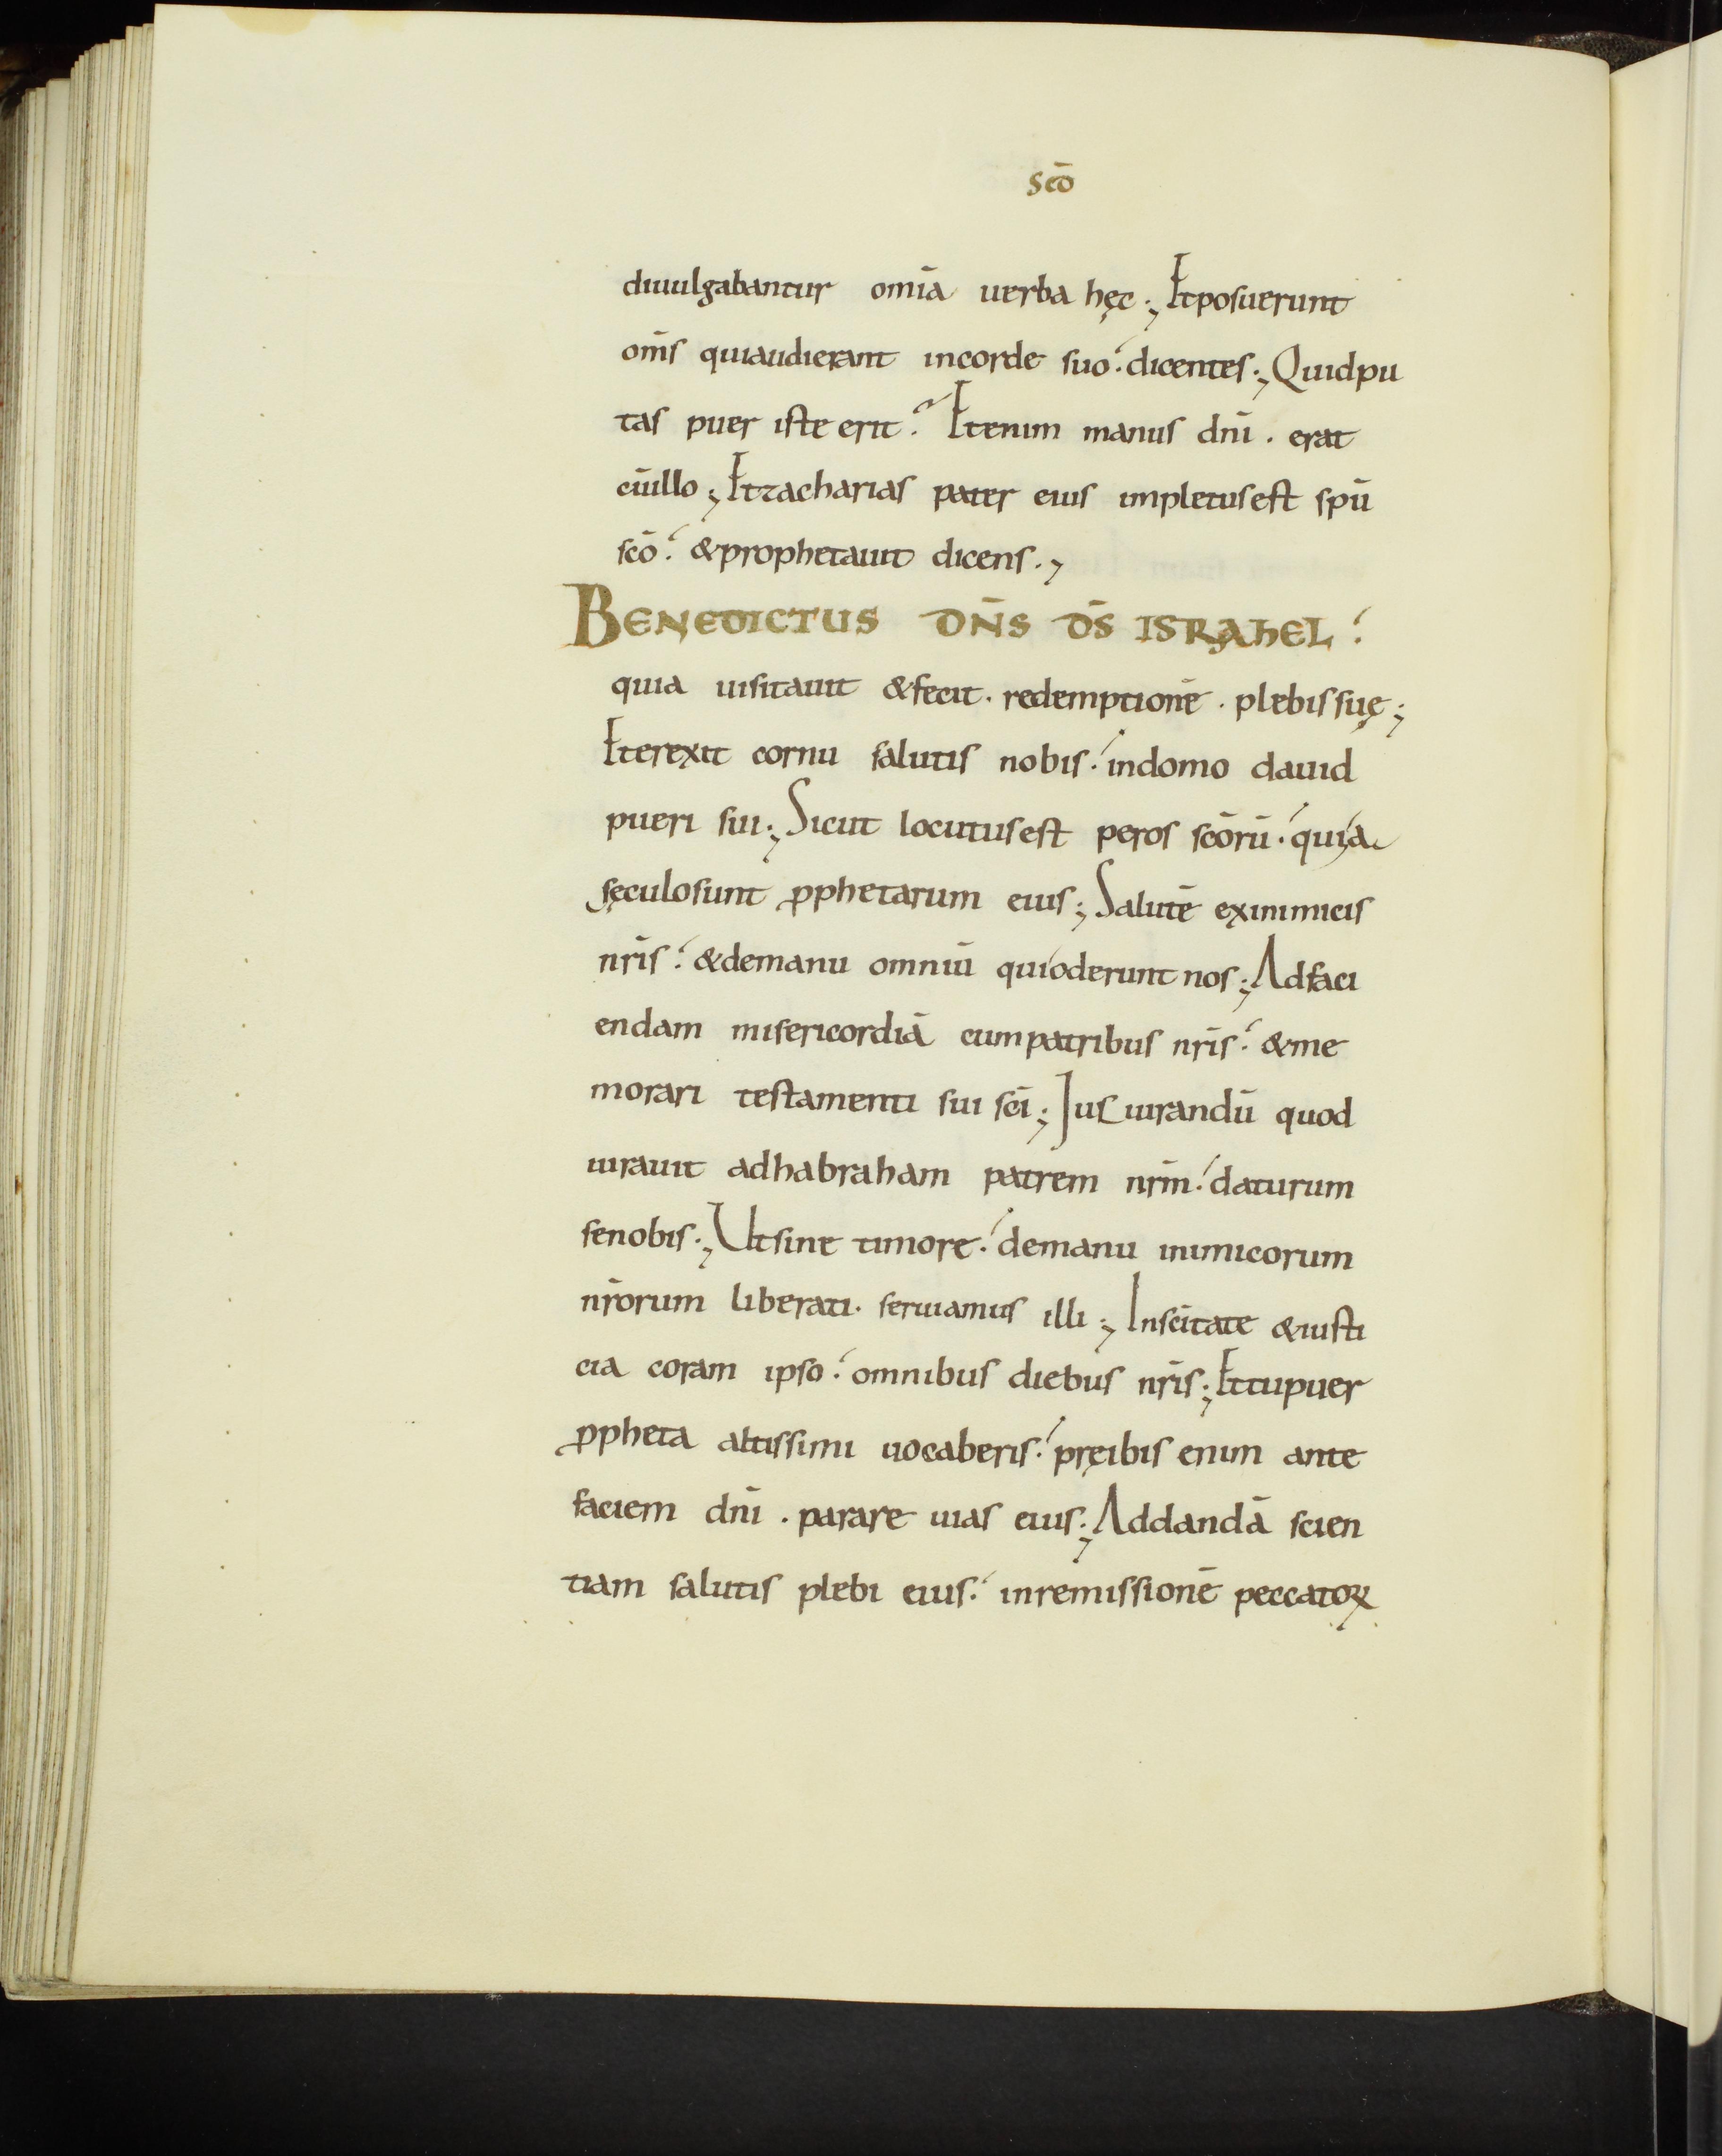 scō
diuulgabantur omīa uerba hęc; Etposuerunt
om̄s quiaudierant incorde suo. dicentes; Quidpu
tas puer iste erit? Etenim manus dn̄i. erat
cūillo; Etzacharias pater eius impletusest spū
scō. &prophetauit dicens;
BENEDICTUS DN̄S D̄S ISRAHEL.
quia uisitauit &fecit. redemptionē. plebissuę;
Eterexit cornu salutis nobis. indomo dauid
pueri sui; Sicut locutusest peros scōrū. quia
sęculosunt ꝓphetarum eius; Salutē exinimicis
nr̄is. &demanu omniū quioderunt nos; Adfaci
endam misericordiā cumpatribus nr̄is. &me
morari testamenti sui scī; Iusiurandū quod
iurauit adhabraham patrem nr̄m. daturum
senobis; Utsine timore. demanu inimicorum
nr̄orum liberati. seruiamus illi; Inscītate &iusti
cia coram ipso. omnibus diebus nr̄is; Ettupuer
ꝓpheta altissimi uocaberis. pręibis enim ante
faciem dn̄i. parare uias eius; Addandā scien
tiam salutis plebi eius. inremissionē peccatoꝝ